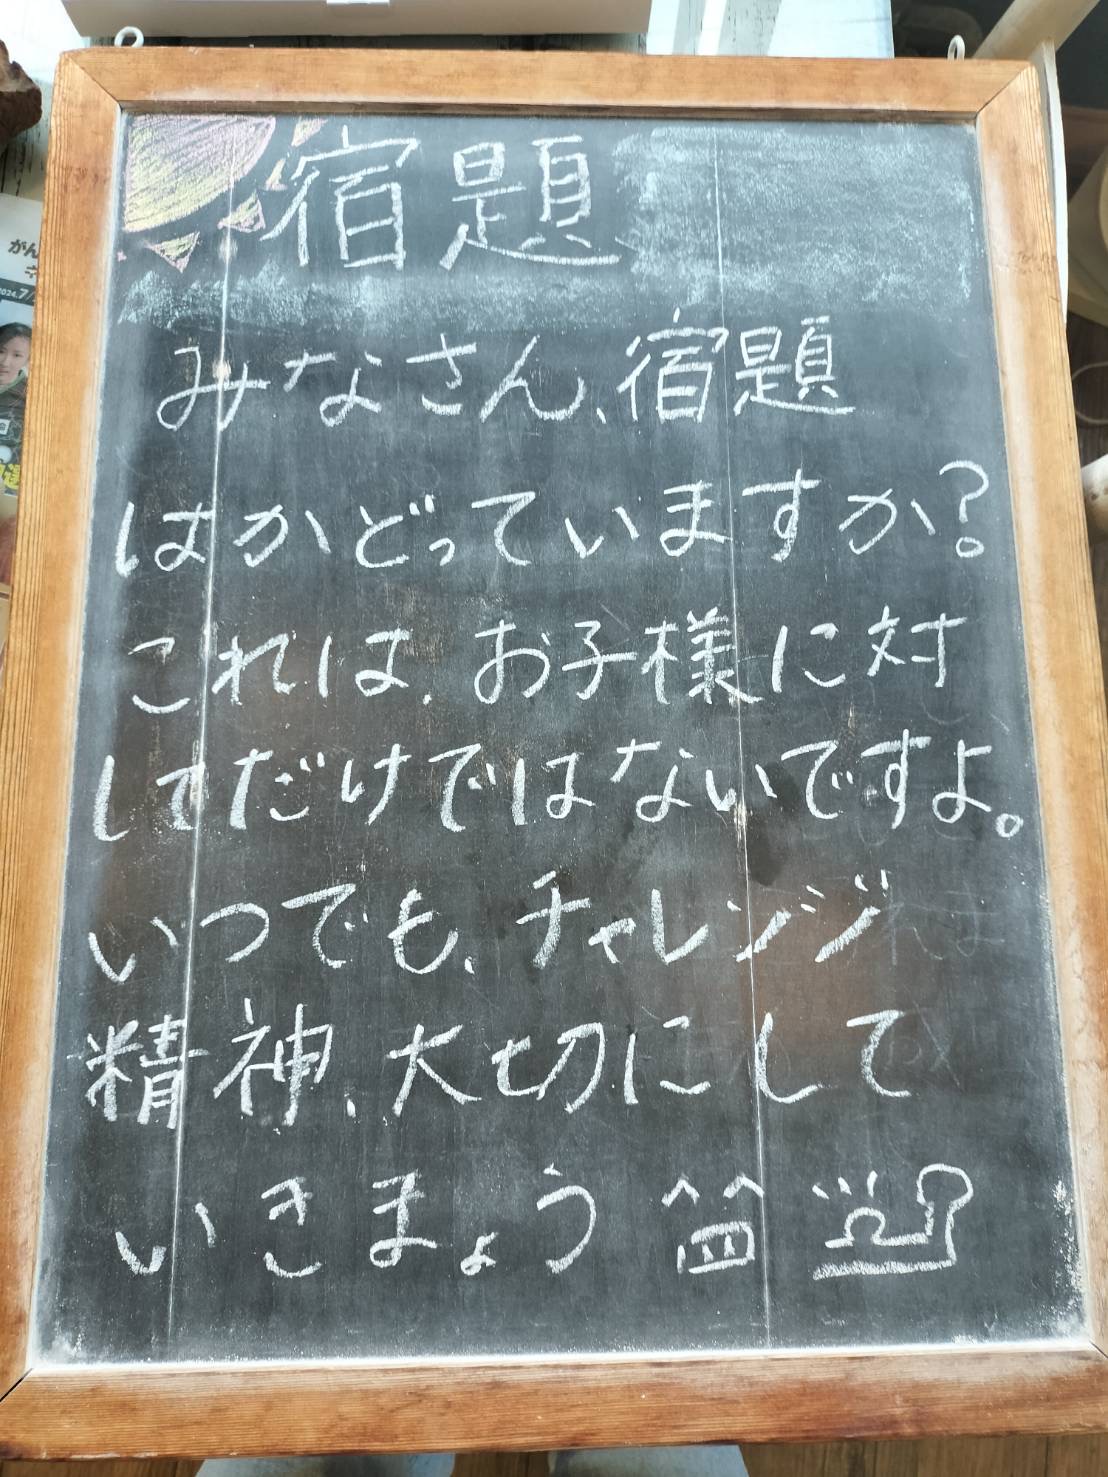 宿題
みなさん、宿題
はかどっていますか?
これは、お子様に対
してだけではないですよ。
いつでも、チャレンジ
精神、大切にして
いきましょう
がん
2024.7